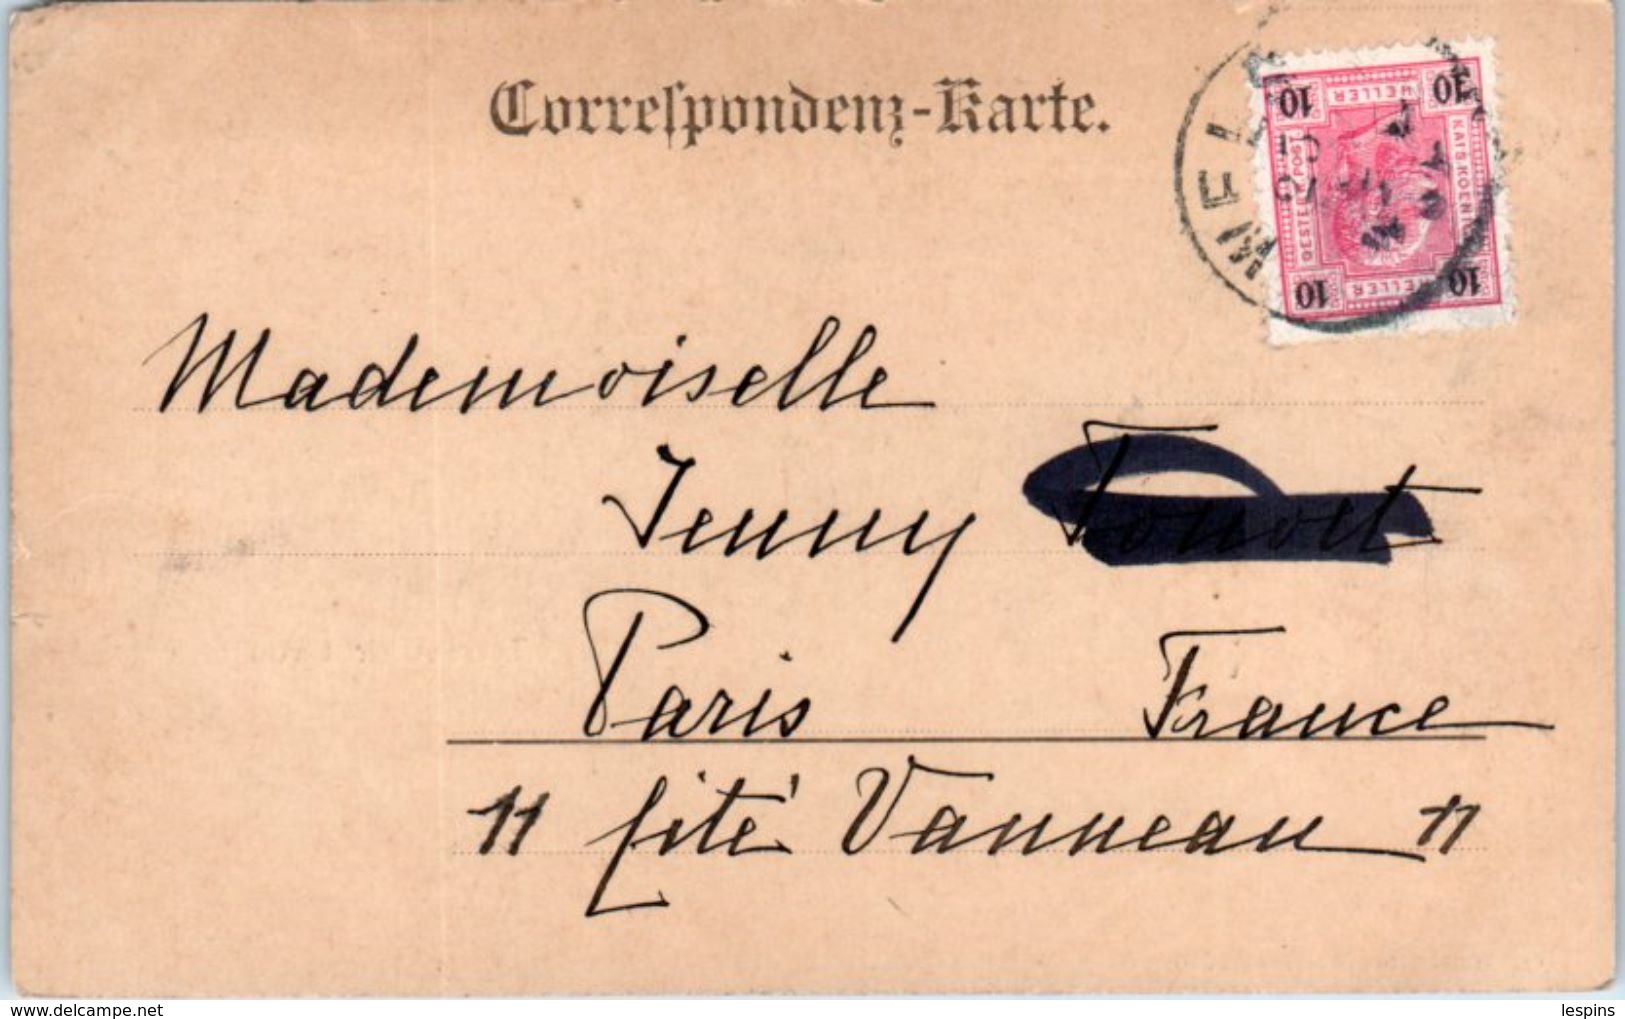 Correspondenz-Karte.
WIEN
10 HELLER 10
KAIS. KOENIGL.
OESTERR. POST
10 HELLER 10
Mademoiselle
Jenny
Paris France
11 Cité Vanneau 11
www.delcampe.net
lespins